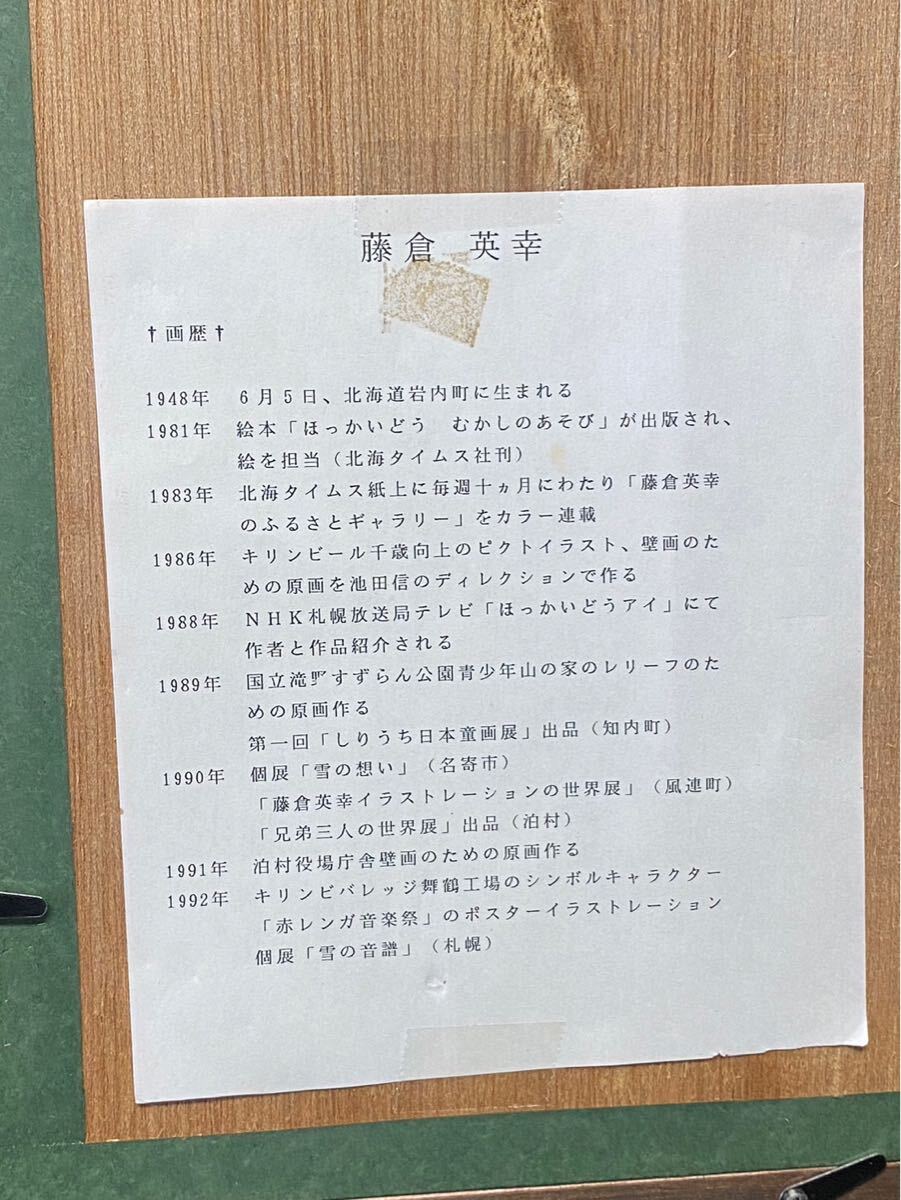 藤倉 英幸
†画歴†
1948年 6月5日、北海道岩内町に生まれる
1981年 絵本「ほっかいどう むかしのあそび」が出版され、
絵を担当（北海タイムス社刊）
1983年 北海タイムス紙上に毎週十ヵ月にわたり「藤倉英幸
のふるさとギャラリー」をカラー連載
1986年 キリンビール千歳向上のピクトイラスト、壁画のた
めの原画を池田信のディレクションで作る
1988年 NHK札幌放送局テレビ「ほっかいどうアイ」にて
作者と作品紹介される
1989年 国立滝野すずらん公園青少年山の家のレリーフのた
めの原画作る
第一回「しりうち日本童画展」出品（知内町）
1990年 個展「雪の想い」（名寄市）
「藤倉英幸イラストレーションの世界展」（風連町）
「兄弟三人の世界展」出品（泊村）
1991年 泊村役場庁舎壁画のための原画作る
1992年 キリンビバレッジ舞鶴工場のシンボルキャラクター
「赤レンガ音楽祭」のポスターイラストレーション
個展「雪の音譜」（札幌）